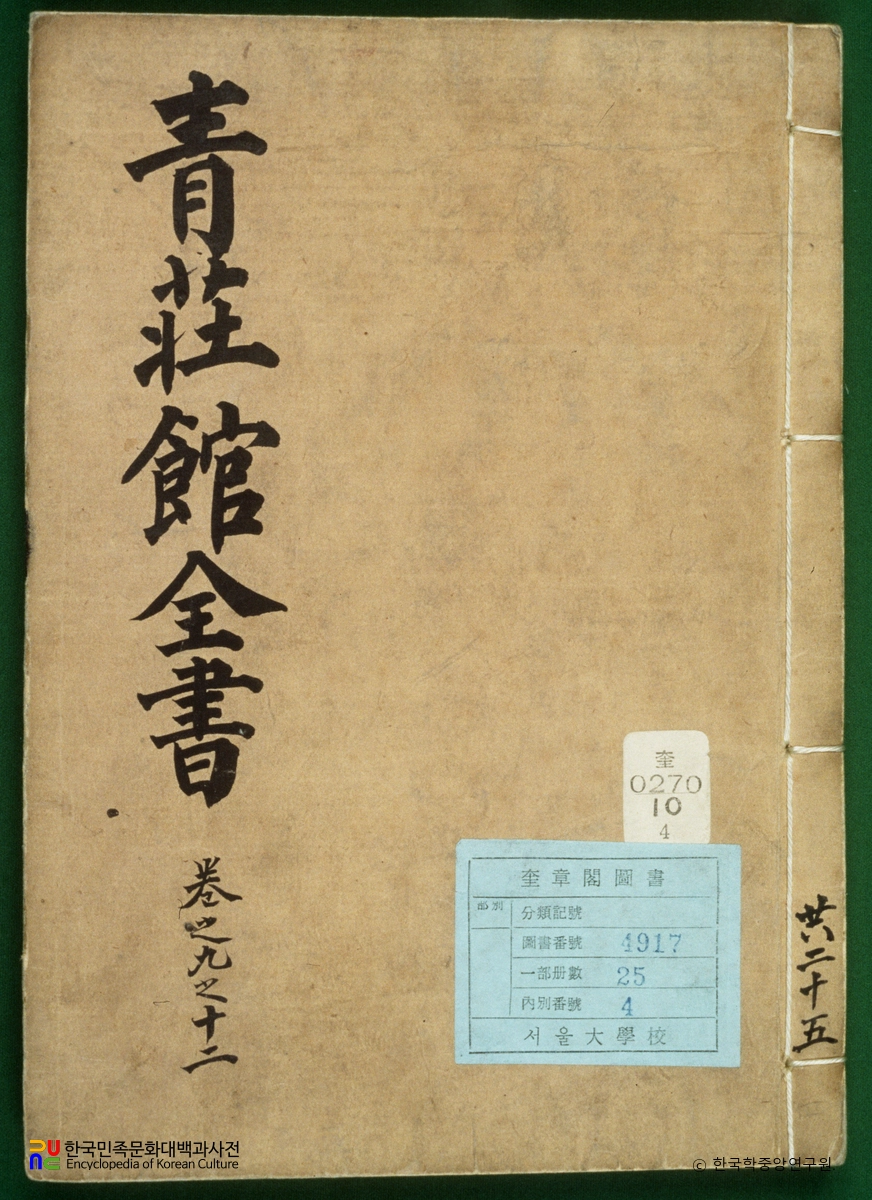 青莊館全書
卷之九之十二
共二十五
奎
0270
10
4
奎章閣圖書
部別
分類記號
圖書番號 4917
一部册數 25
內別番號 4
서울大學校
한국민족문화대백과사전
Encyclopedia of Korean Culture
© 한국학중앙연구원